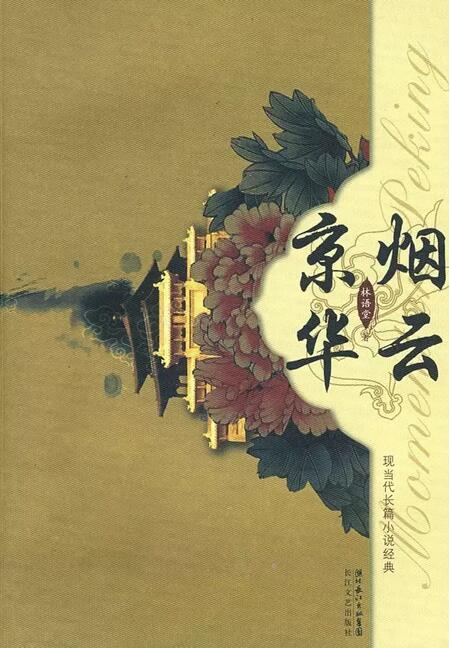 京华
烟云
林语堂 著
Moment Peking
现当代长篇小说经典
湖北长江出版集团
长江文艺出版社